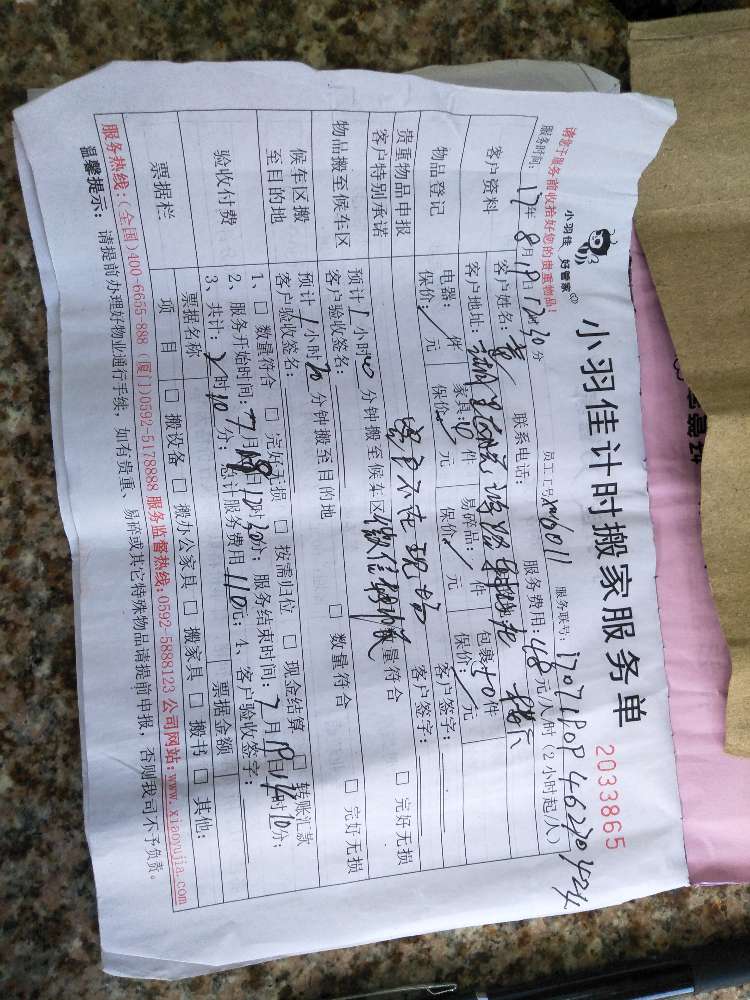 小羽佳 好管家
小羽佳计时搬家服务单
2033865
请您于服务前收拾好您的贵重物品!
服务时间: 17年 8月 19日 12时30分 员工工号 服务联号:
客户资料
客户姓名: 联系电话: 服务费用:48元/人/时(2小时起/人)
客户地址:
物品登记
电器: 件 家具: 件 易碎品: 件 包裹 件
保价: 元 保价: 元 保价: 元 保价: 元
贵重物品申报 客户签字:
客户特别承诺 客户不在现场 客户签字:
物品搬至候车区
预计1小时 分钟搬至候车区 数量符合 □ 完好无损
客户验收签名:
候车区搬至目的地
预计1小时20分钟搬至目的地 □ 数量符合 □ 完好无损
客户验收签名:
验收付费
1、□ 数量符合 □ 完好无损 □ 按需归位 □ 现金结算 □ 转账汇款
2、服务开始时间: 月 日 时 分; 服务结束时间: 月19日14时10分;
3、共计: 时10分; 总计服务费用110元; 4、客户验收签字:
票据栏
票据名称 票据金额
项目 □ 搬设备 □ 搬办公家具 □ 搬家具 □ 搬书 □ 其他:
服务热线:(全国)400-6655-888 (厦门)0592-5178888 服务监督热线:0592-5888123 公司网站:www.xiaoyujia.com
温馨提示: 请提前办理好物业通行手续, 如有贵重、易碎或其它特殊物品请提前申报, 否则我司不予负责。